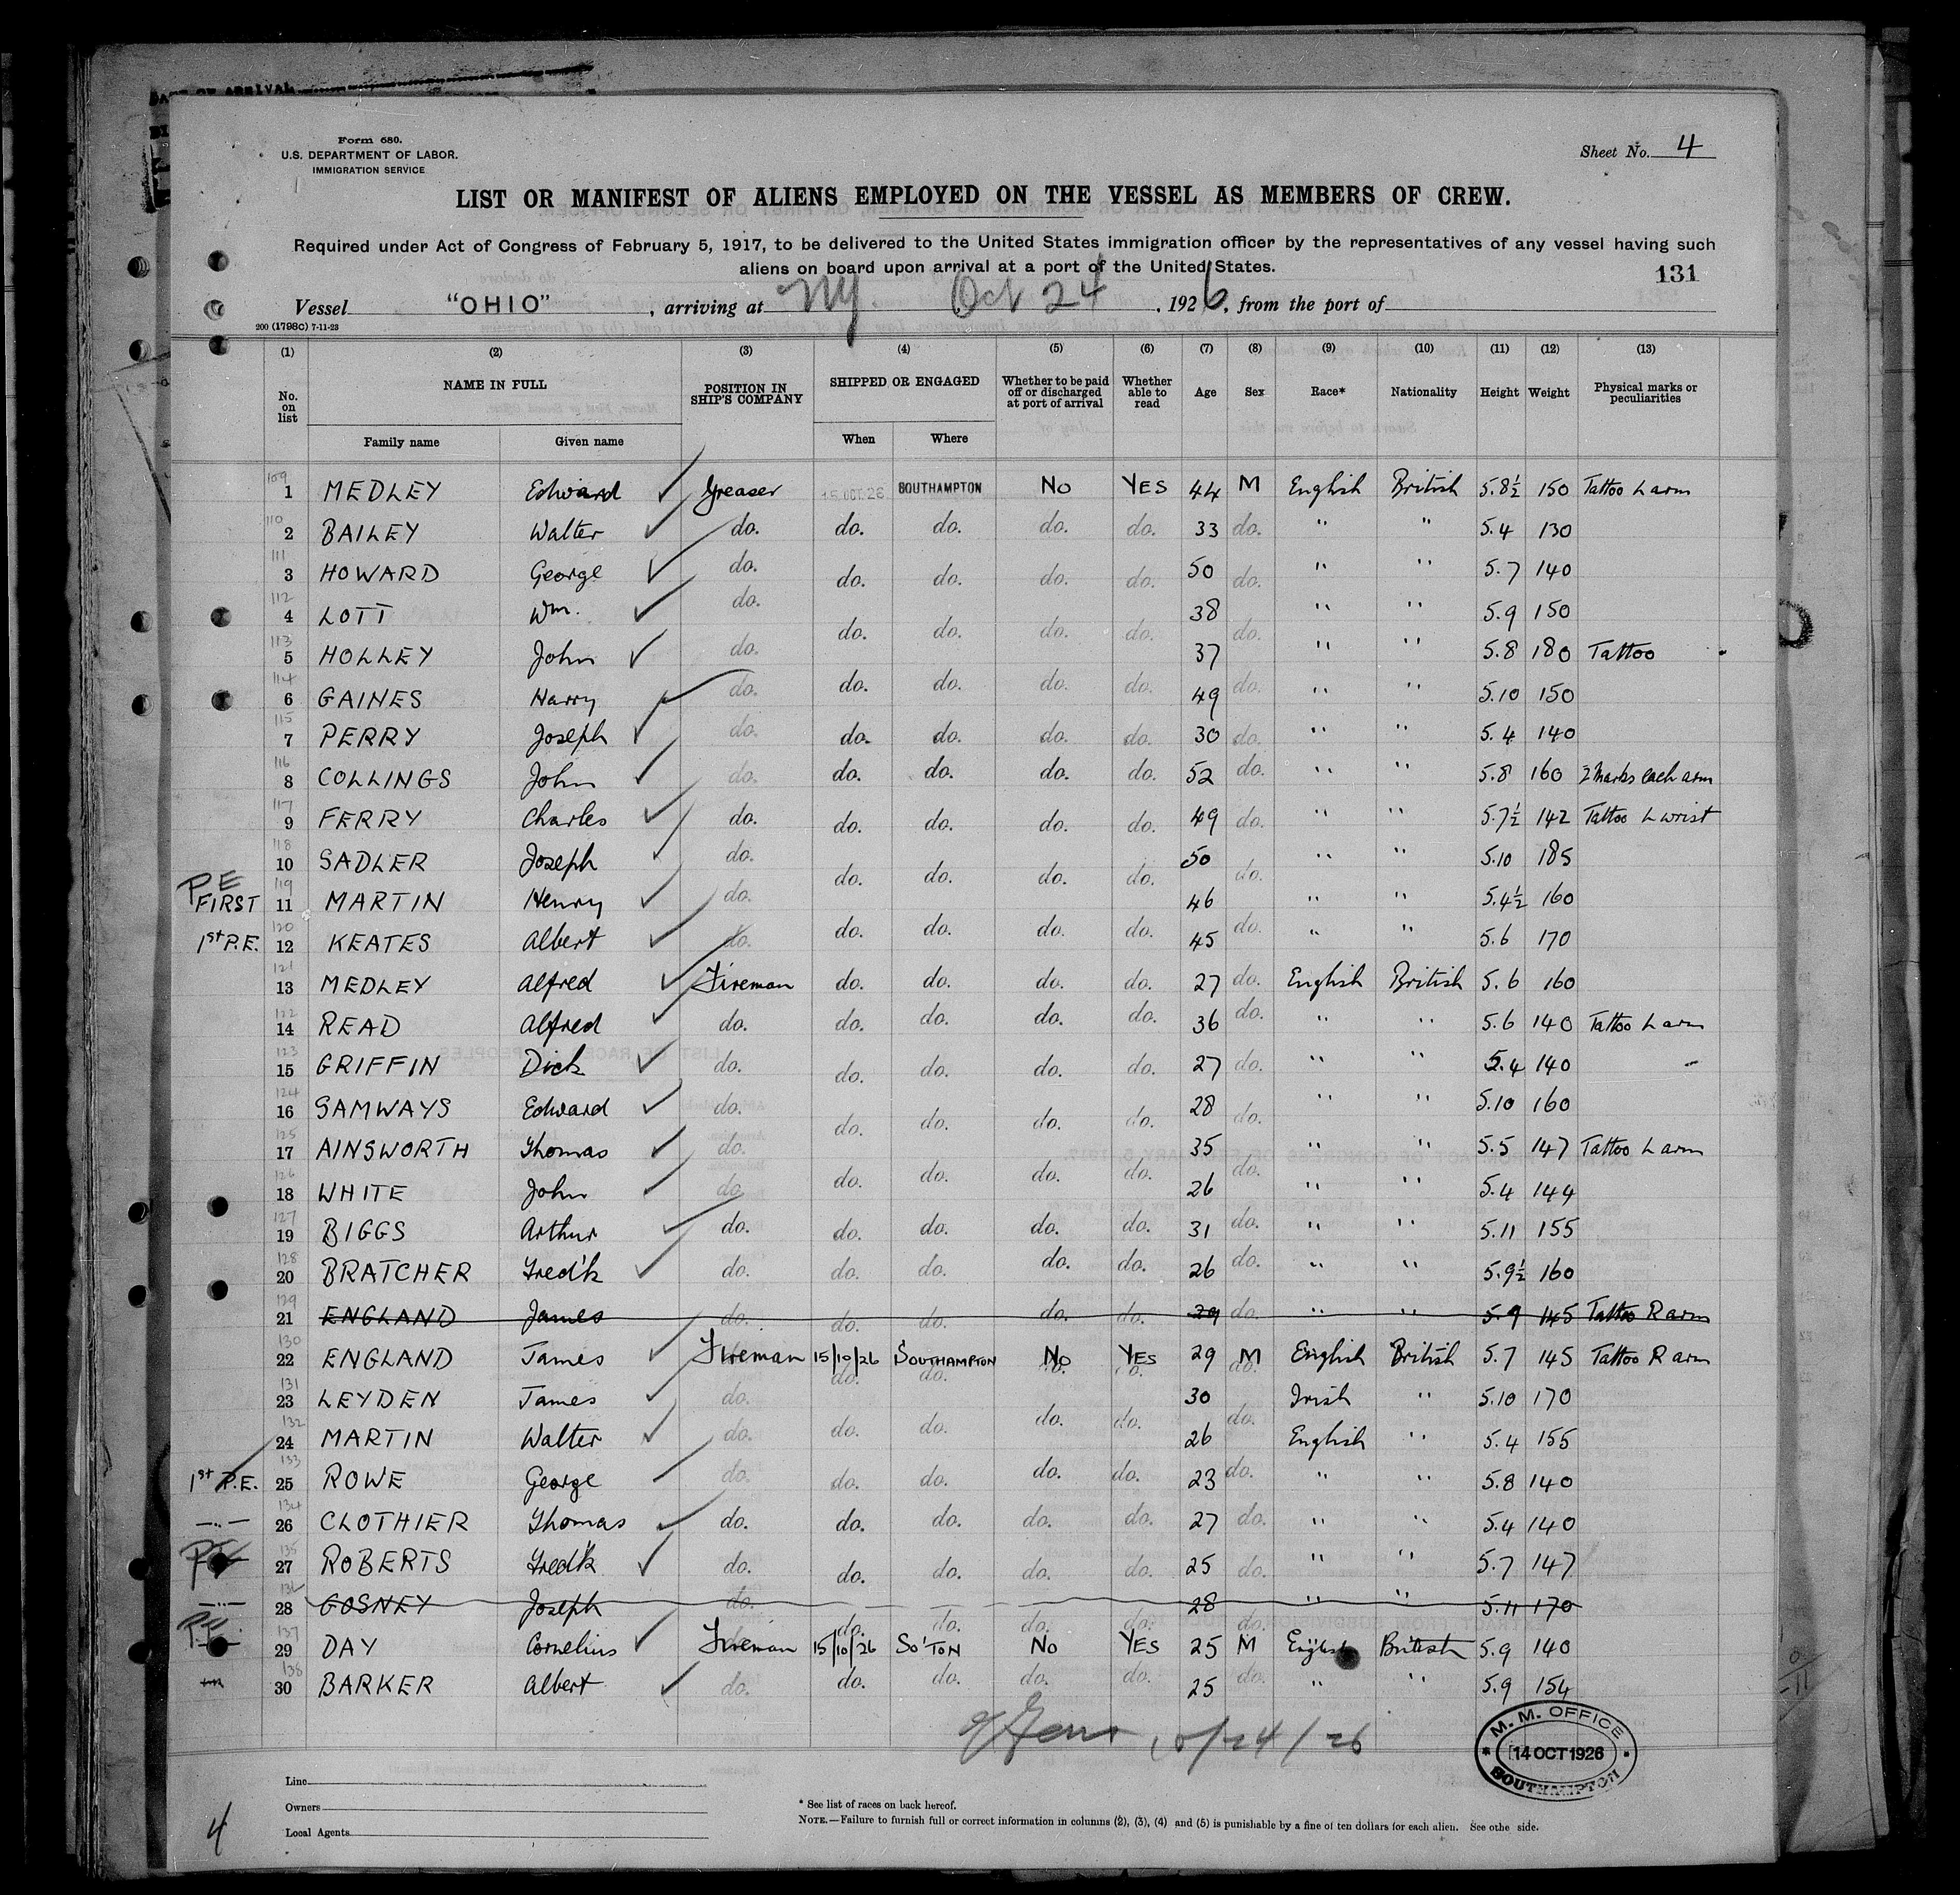 Form 680.
U.S. DEPARTMENT OF LABOR.
IMMIGRATION SERVICE
Sheet No. 4
LIST OR MANIFEST OF ALIENS EMPLOYED ON THE VESSEL AS MEMBERS OF CREW.
Required under Act of Congress of February 5, 1917, to be delivered to the United States immigration officer by the representatives of any vessel having such
aliens on board upon arrival at a port of the United States.
131
Vessel "OHIO", arriving at NY. Oct 24, 1926, from the port of
200 (1798C) 7-11-23
(1) (2) (3) (4) (5) (6) (7) (8) (9) (10) (11) (12) (13)
No. on list NAME IN FULL POSITION IN SHIP'S COMPANY SHIPPED OR ENGAGED Whether to be paid off or discharged at port of arrival Whether able to read Age Sex Race* Nationality Height Weight Physical marks or peculiarities
Family name Given name When Where
109 1 MEDLEY Edward ✓ Greaser 15 OCT 26 SOUTHAMPTON No YES 44 M English British 5.8½ 150 Tattoo L arm
110 2 BAILEY Walter ✓ do. do. do. do. do. 33 do. " " 5.4 130
111 3 HOWARD George ✓ do. do. do. do. do. 50 do. " " 5.7 140
112 4 LOTT Wm. ✓ do. do. do. do. do. 38 do. " " 5.9 150
113 5 HOLLEY John ✓ do. 37 " " 5.8 180 Tattoo
114 6 GAINES Harry ✓ do. do. do. do. do. 49 do. " " 5.10 150
115 7 PERRY Joseph ✓ do. do. do. do. do. 30 do. " " 5.4 140
116 8 COLLINGS John ✓ do. do. do. do. do. 52 do. " " 5.8 160 2 Marks each arm
117 9 FERRY Charles ✓ do. do. do. do. do. 49 do. " " 5.7½ 142 Tattoo L wrist
118 10 SADLER Joseph ✓ do. do. do. do. do. 50 do. " " 5.10 185
P E FIRST 119 11 MARTIN Henry ✓ do. 46 " " 5.4½ 160
1st P.E. 120 12 KEATES Albert ✓ do. do. do. do. do. 45 do. " " 5.6 170
121 13 MEDLEY Alfred ✓ Fireman do. do. do. do. 27 do. English British 5.6 160
122 14 READ Alfred ✓ do. do. do. do. do. 36 do. " " 5.6 140 Tattoo L arm
123 15 GRIFFIN Dick ✓ do. do. do. do. do. 27 do. " " 5.4 140
124 16 SAMWAYS Edward ✓ do. do. do. do. do. 28 do. " " 5.10 160
125 17 AINSWORTH Thomas ✓ do. 35 " " 5.5 147 Tattoo L arm
126 18 WHITE John ✓ do. do. do. do. do. 26 do. " " 5.4 144
127 19 BIGGS Arthur ✓ do. do. do. do. do. 31 do. " " 5.11 155
128 20 BRATCHER Fred'k ✓ do. do. do. do. do. 26 do. " " 5.9½ 160
129 21 ENGLAND James do. do. do. do. do. 29 do. " " 5.9 145 Tattoo R arm
130 22 ENGLAND James ✓ Fireman 15/10/26 SOUTHAMPTON No YES 29 M English British 5.7 145 Tattoo R arm
do. do. do. do. do.
131 23 LEYDEN James ✓ do. 30 Irish " 5.10 170
132 24 MARTIN Walter ✓ do. do. do. do. do. 26 do. English " 5.4 155
1st P.E. 133 25 ROWE George ✓ do. do. do. do. do. 23 do. " " 5.8 140
134 26 CLOTHIER Thomas ✓ do. do. do. do. do. 27 do. " " 5.4 140
135 27 ROBERTS Fred'k ✓ do. do. do. do. do. 25 do. " " 5.7 147
136 28 GOSNEY Joseph do. do. do. do. do. 28 do. " " 5.11 170
P.E. 137 29 DAY Cornelius ✓ Fireman 15/10/26 SO'TON No YES 25 M English British 5.9 140
138 30 BARKER Albert ✓ do. do. do. do. do. 25 do. " " 5.9 154
10/24/26
M. M. OFFICE
14 OCT 1926
SOUTHAMPTON
Line
Owners
Local Agents
* See list of races on back hereof.
NOTE.—Failure to furnish full or correct information in columns (2), (3), (4) and (5) is punishable by a fine of ten dollars for each alien. See othe side.
4